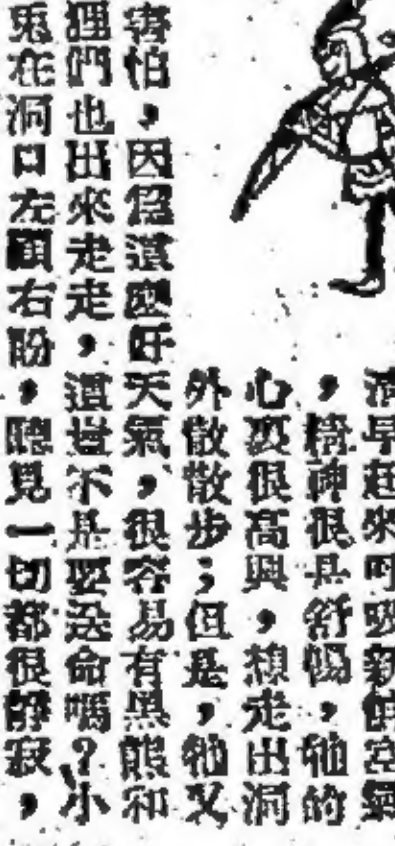 清早起來呼吸新鮮空氣
，精神很是舒暢，牠的
心裏很高興，想走出洞
外散散步；但是，牠又
害怕，因爲這麼好天氣，很容易有黑熊和
狸們也出來走走，這豈不是要送命嗎？小
兎在洞口左顧右盼，聽見一切都很靜寂，